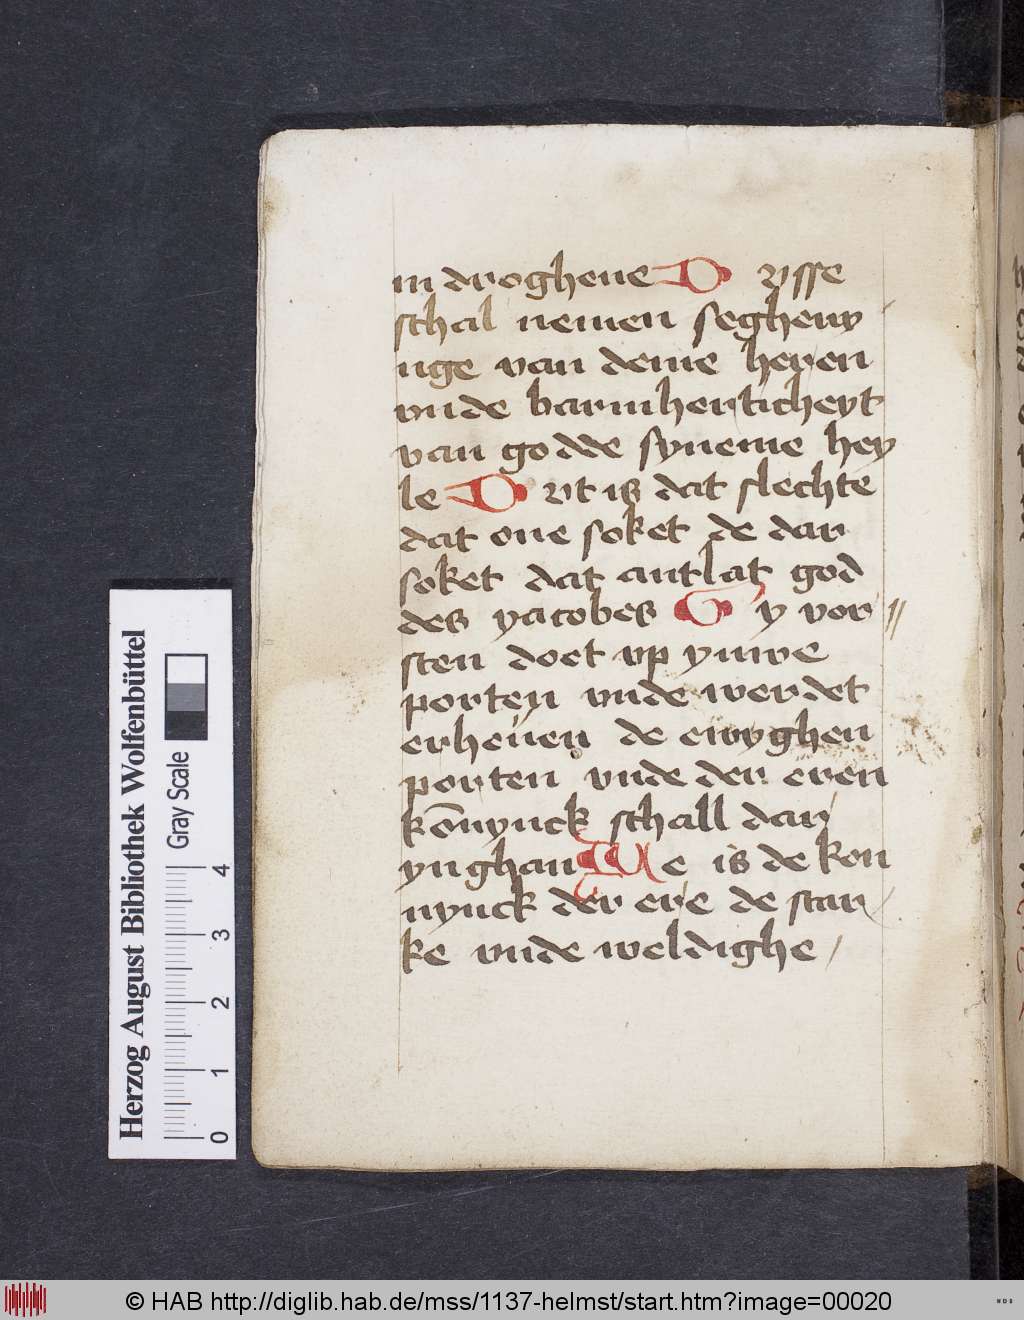 in droghene D ysse
schal nemen segheny
nge van deme heren
vnde barmherticheyt
van godde syneme hey
le D yt is dat slechte
dat one soket de dar
soket dat antlat god
des yacobes G y vor //
sten doet vp yuwe
porten vnde werdet
erheuen de ewyghen
porten vnde der eren
kōnynck schall dar
ynghan We is de kon
nynck der ere de star
ke vnde weldighe /
Herzog August Bibliothek Wolfenbüttel
Gray Scale
0 1 2 3 4
© HAB http://diglib.hab.de/mss/1137-helmst/start.htm?image=00020